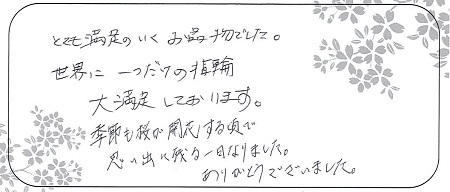 とても満足のいくお買い物でした。
世界に一つだけの指輪
大満足しております。
季節も桜が開花する頃で
思い出に残る一日なりました。
ありがとうございました。